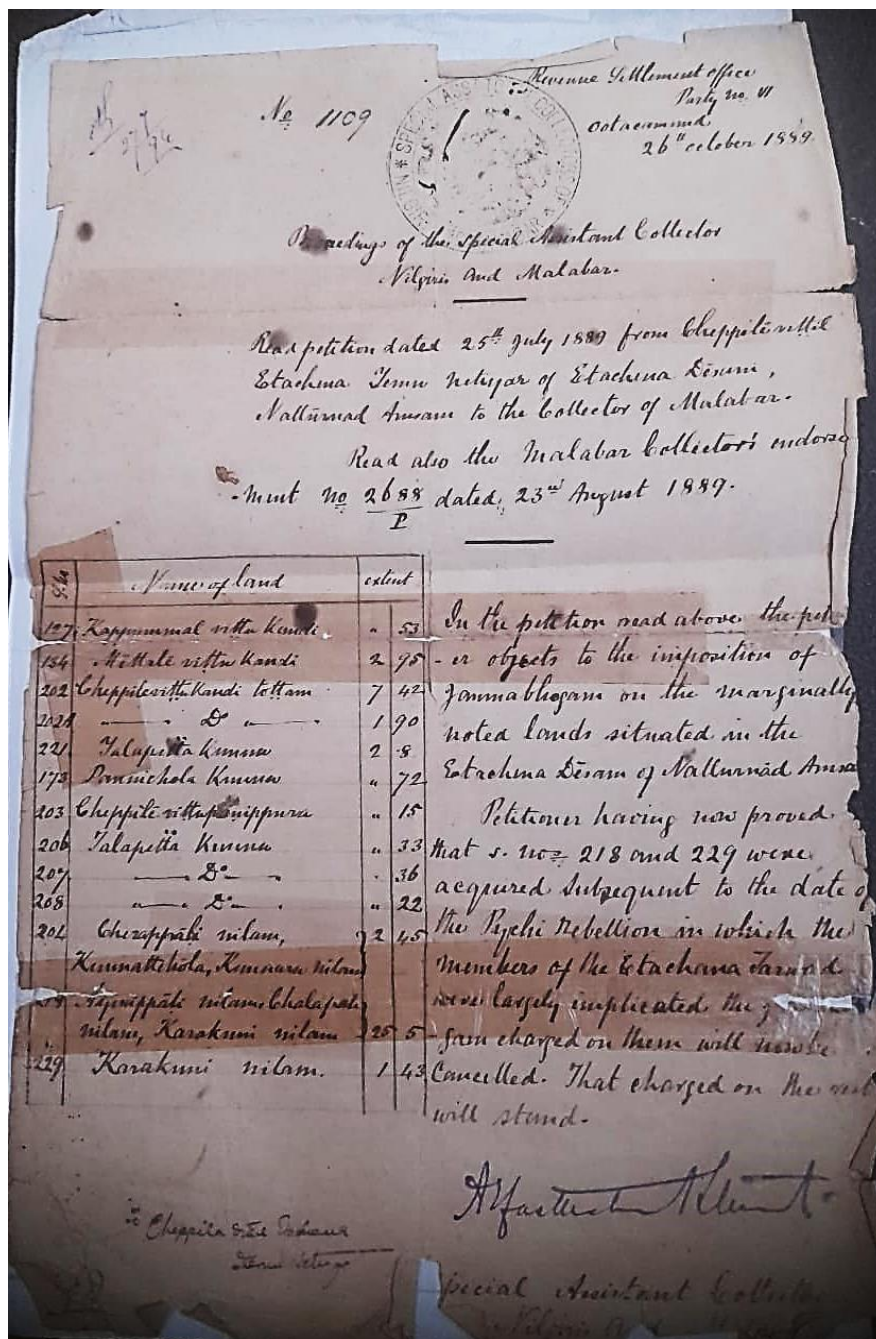 Revenue Settlement office
Party no. VI
Ootacamund
26th october 1889.
No 1109
SPECIAL ASST TO COLLECTORS OF
Proceedings of the special Assistant Collector
Nilgiris and Malabar.
Read petition dated 25th July 1889 from Cheppite vittil
Etachena Temu netiyar of Etachena Dēsam,
Nallūrnad Amsam to the Collector of Malabar.
Read also the Malabar Collector's endorse
-ment no 2688/P dated, 23rd August 1889.
S.No Name of land extent
127 Kappummal vittu Kandi " 53
184 Mēttale vittu Kandi 2 95
202 Cheppite vittu Kandi tottam 7 42
202 Do 1 90
221 Talapetta Kunnu 2 8
173 Kunnu " 72
203 Cheppite vittu " 15
206 Talapetta Kunnu " 33
207 Do " 36
208 Do " 22
204 nilam, 2 45
nilam
nilam, Chalapali
nilam, Karakuni nilam 25 5
229 Karakuni nilam. 1 43
In the petition read above the peti
-er objects to the imposition of
Janmabhogam on the marginally
noted lands situated in the
Etachena Dēsam of Nallurnād Amsa
Petitioner having now proved
that s. nos 218 and 229 were
acquired subsequent to the date of
the Pychi Rebellion in which the
members of the Etachana Tarwad
were largely implicated the
-gam charged on them will now be
Cancelled. That charged on the rest
will stand.
To
Special Assistant Collector
Nilgiris and